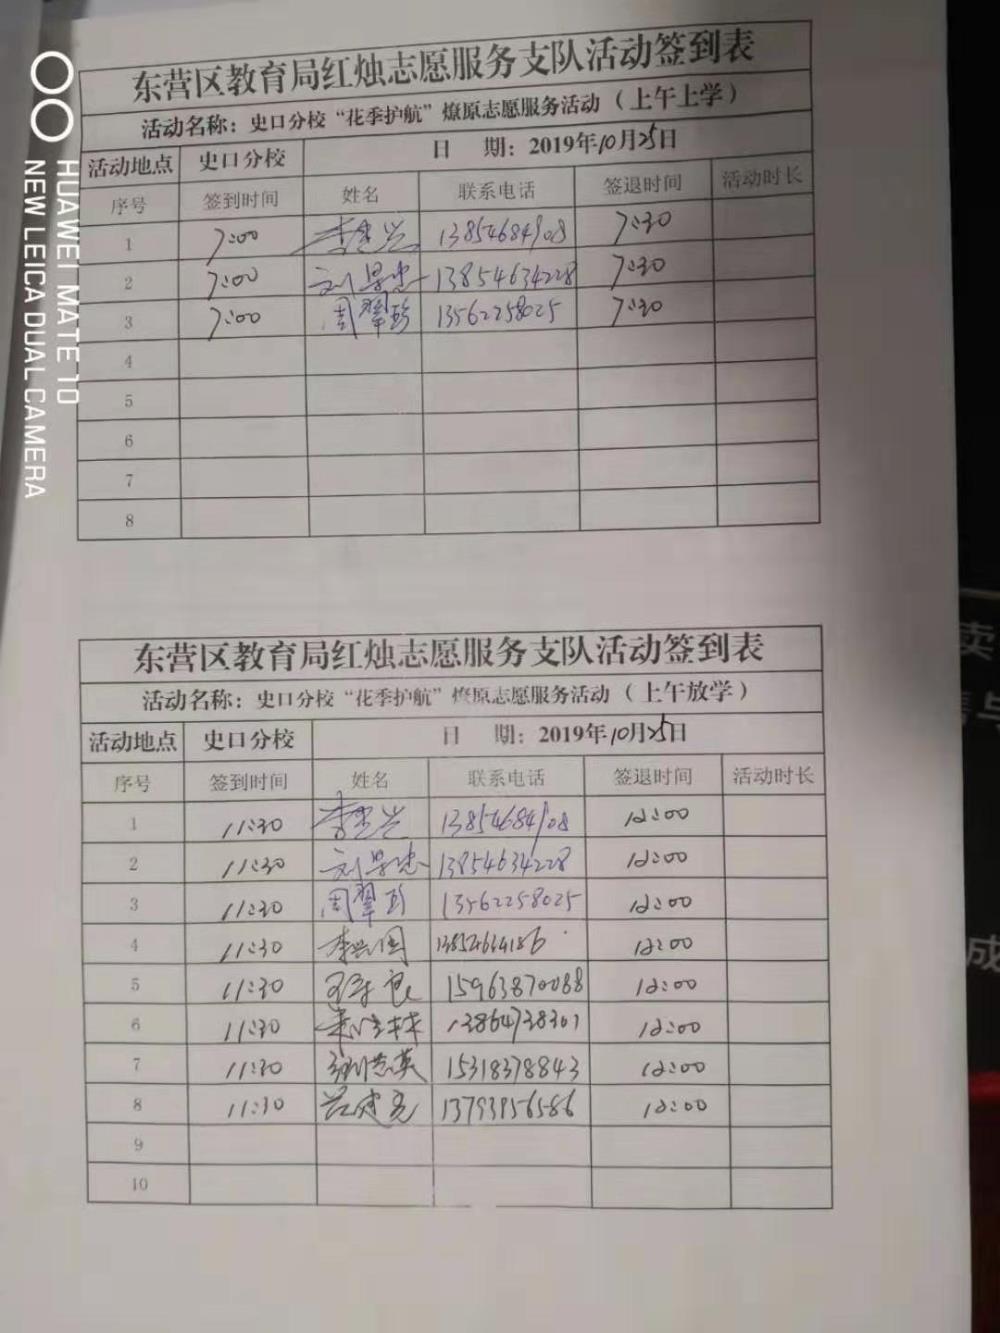 东营区教育局红烛志愿服务支队活动签到表
活动名称：史口分校“花季护航”燎原志愿服务活动（上午上学）
活动地点 史口分校 日 期：2019年10月25日
序号 签到时间 姓名 联系电话 签退时间 活动时长
1 7:00 13854684908 7:30
2 7:00 刘景忠 13854634228 7:30
3 7:00 周翠珍 13562258025 7:30
4
5
6
7
8
东营区教育局红烛志愿服务支队活动签到表
活动名称：史口分校“花季护航”燎原志愿服务活动（上午放学）
活动地点 史口分校 日 期：2019年10月25日
序号 签到时间 姓名 联系电话 签退时间 活动时长
1 11:30 13854684908 12:00
2 11:30 刘景忠 13854634228 12:00
3 11:30 周翠珍 13562258025 12:00
4 11:30 李兴国 12:00
5 11:30 15963870088 12:00
6 11:30 13864738301 12:00
7 11:30 15318378843 12:00
8 11:30 12:00
9
10
HUAWEI MATE 10
NEW LEICA DUAL CAMERA
卖
成